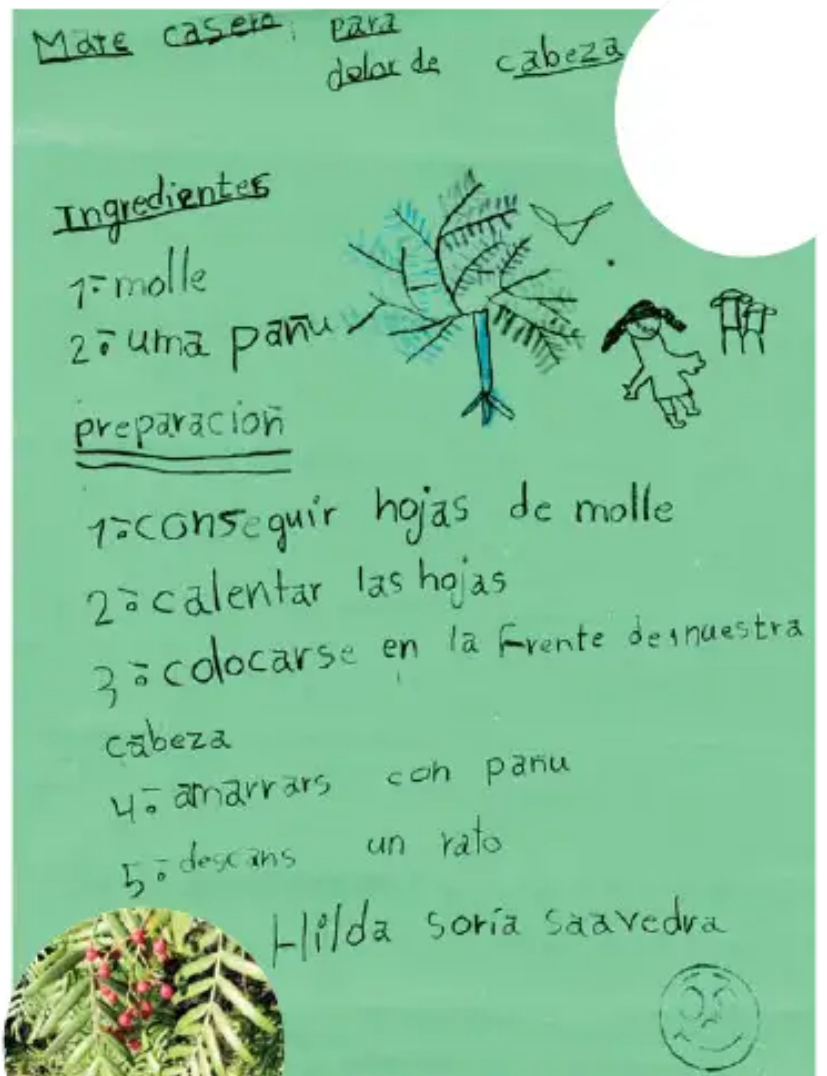 Mate casero: para
dolor de cabeza
Ingredientes
1º molle
2º uma pañu
preparacion
1º conseguir hojas de molle
2º calentar las hojas
3º colocarse en la frente de nuestra
cabeza
4º amarrars con pañu
5º descans un rato
Hilda soria saavedra